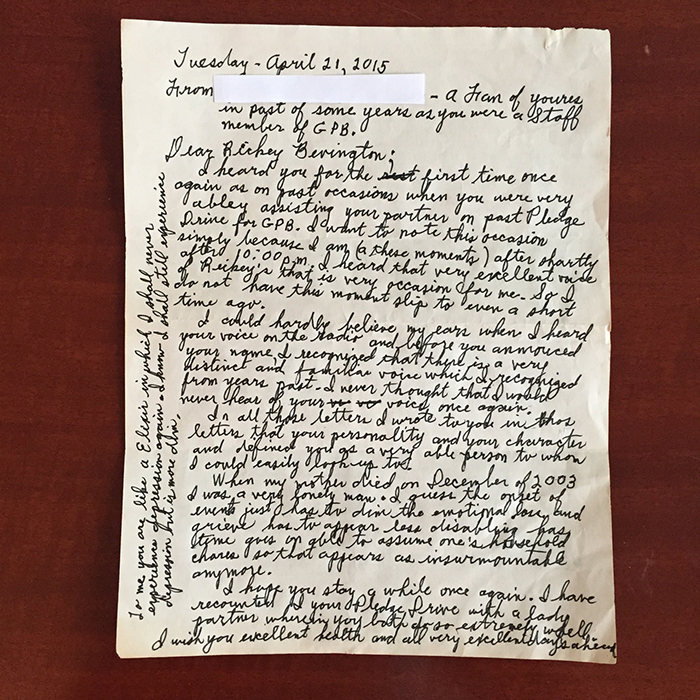 Tuesday - April 21, 2015
From - a Fan of youres
in past of some years as you were a Staff
member of GPB.
Dear Rickey Bevington;
I heard you for the first time once
again as on past occasions when you were very
abley assisting your partner on past Pledge
Drive for GPB. I want to note this occasion
simply because I am (a these moments) after shortly
after 10:00 p.m. I heard that very excellent voice
of Rickey's that is very occasion for me. So I
do not have this moment slip to even a short
time ago.
I could hardly believe my ears when I heard
your voice on the radio and before you announced
your name, I recognized that there is a very
distinct and familiar voice which I recognized
from years past. I never thought that I would
never hear of your voice once again.
In all those letters I wrote to you in thos
letters that your personality and your character
and defined you as a very able person to whom
I could easily look up to.
When my mother died on December of 2003
I was a very lonely man. I guess the onset of
events just has to dim the emotional lose and
grieve has to appear less disabling has
time goes on able to assume one's household
chares so that appears as insurmountable
anymore.
I hope you stay a while once again. I have
recounted your Pledge Drive with a lady
partner wherein you both do so extremely well.
I wish you excellent health and all very excellent days ahead
To me you are like a Elixir in which I shall never
experience depression again. I know I shall still experience
depression but is more dim.